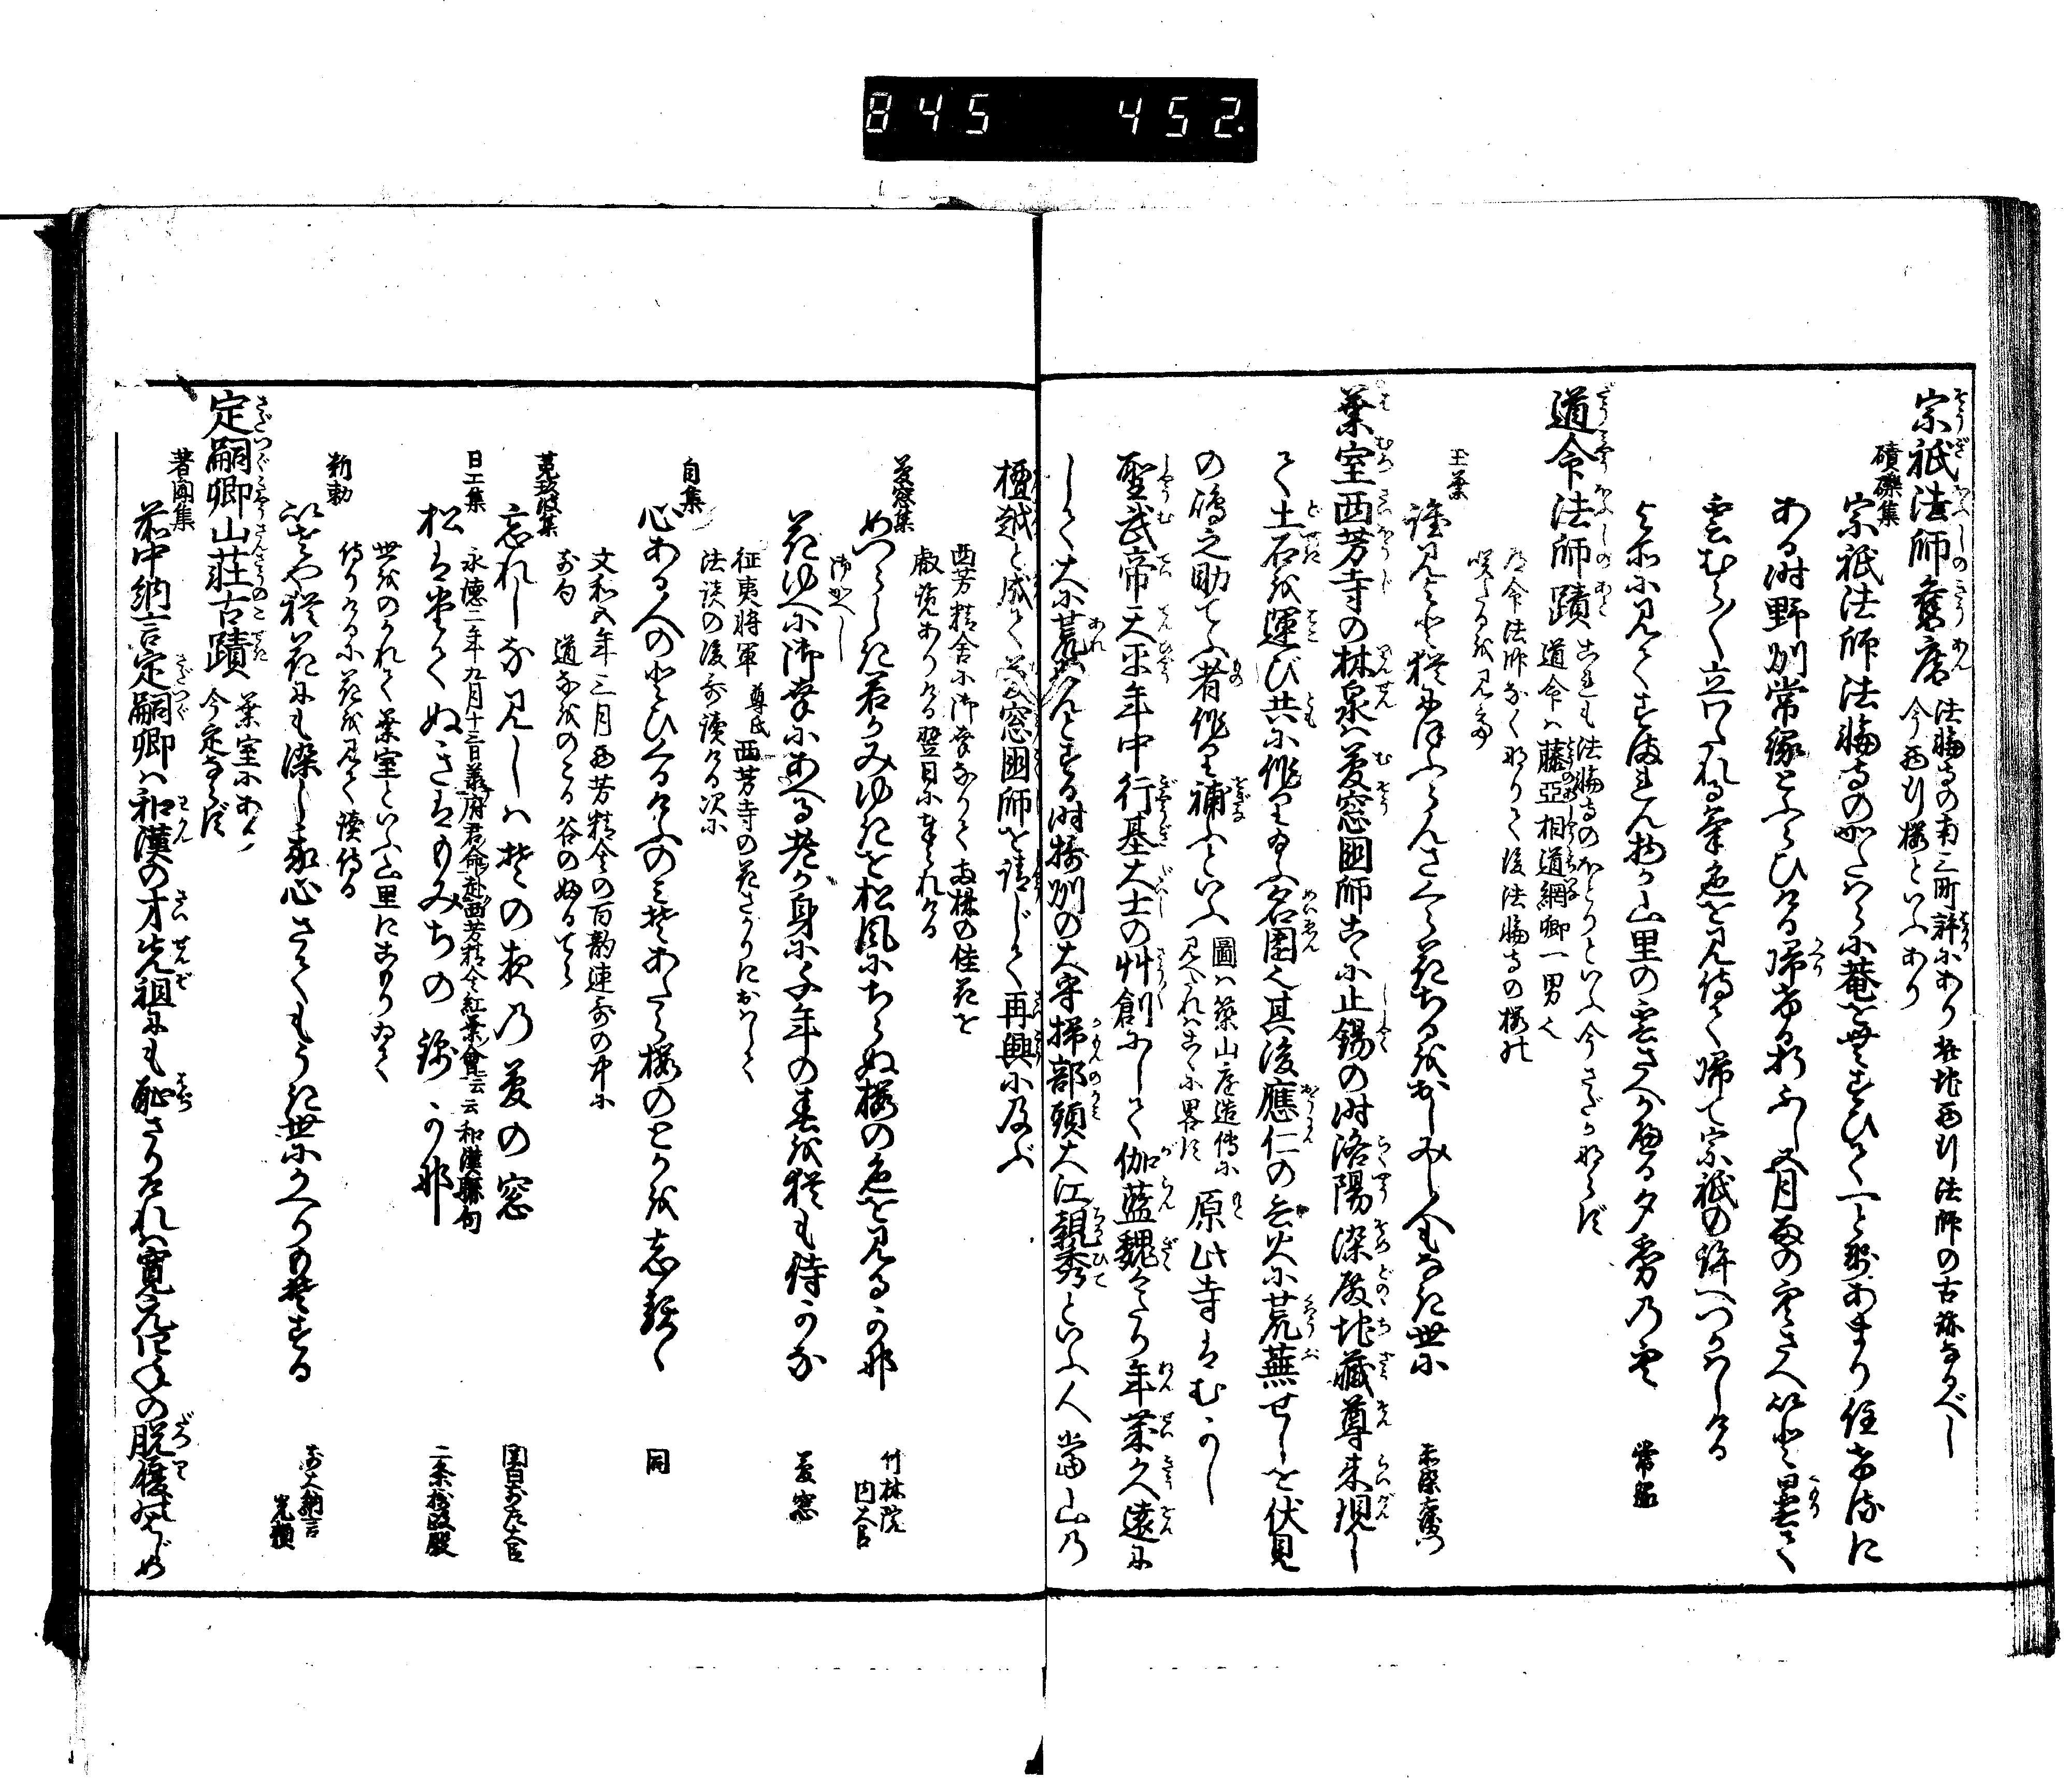 845 452.
宗祇法師舊庵 法輪寺の南二町許にあり此地西行法師の古跡なるべし
今西行桜といふあり
磧礫集
宗祇法師法輪寺のかたはらに菴をむすひて一とせあまり住けるに
ある時野州常縁とふらひける帰ける折ふし五月雨の空さへいとゝ曇て
雲むら〱立わたれる気色を見侍て帰て宗祇の許へつかはしける
よそに見てすまれん物か山里の雲さへかへる夕暮の空 常縁
道命法師蹟 これも法輪寺のほとりといふ今さだかならず
道命は藤亜相道綱卿一男也
道命法師なくなりて後法輪寺の桜の
咲たるを見て
玉葉
誰見よと猶にほふらんさくら花ちるをおしみし人もなき世に 赤染衛門
葉室西芳寺の林泉は夢窓国師こゝに止錫の時洛陽染殿地蔵尊来現し
て土石を運び共に作り給ふ名園也其後應仁の兵火に荒蕪せしを伏見
の
之助てふ者作り補ふといふ 圖は築山庭造傳に
見へたれはこゝに畧す 原此寺はむかし
聖武帝天平年中行基大士の艸創にして伽藍魏々たり年葉久遠に
して大に荒れんとする時摂州の大守掃部頭大江親秀といふ人當山乃
檀越と成て夢窓国師を請じて再興に及ぶ
西芳精舎に御幸なりて両株の佳花を
叡覧ありける翌日に奉られける
夢窓集
めつらしき君かみゆきを松風にちらぬ桜の色を見るかな 竹林院内大臣
御かへし
花ゆへに御幸にあへる老か身に千年の春を猶も待かな 夢窓
征夷将軍 尊氏 西芳寺の花さかりにおはして
法談の後哥讀ける次に
自集
心ある人のとひくるけふのみそあたら桜のとかを忘るゝ 同
文和五年三月西芳精舎の百韵連哥の中に
前句 道なをのこる谷の
菟玖波集
忘れしな見しは花の夜乃夢の窓 関白前左大臣
日工集
永徳二年九月十三日義府君命赴西芳精舎紅葉會云云和漢聯句
松はなくぬさはもみちの錦かな 二条摂政殿
世をのかれて葉室といふ山里にこもりゐて
侍りけるに花を見て讀侍る
新勅
いさや猶花にも染し我心さてもうき世にかへりもそする 前大納言光頼
定嗣卿山荘古蹟 葉室にあり
今定ならず
著聞集
前中納言定嗣卿は和漢の才先祖にも恥さりけれは寛元に年の脱屣のはじめ